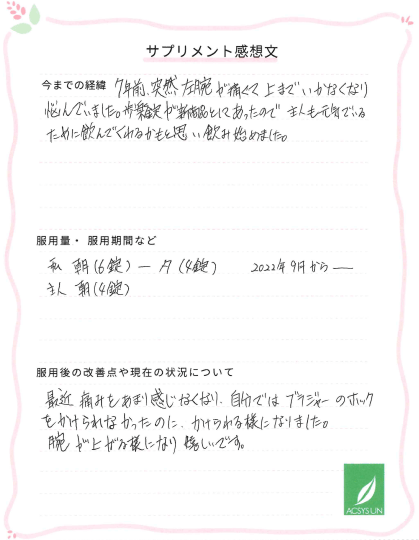 サプリメント感想文
今までの経緯 7年前、突然左腕が痛くて上まで いかなくなり
悩んでいました。 が新商品としてあったので 主人も元気でいる
ために飲んでくれるかもと思い飲み始めました。
服用量・服用期間など
私 朝(6錠) ー 夕(4錠) 2022年9月から ー
主人 朝(4錠)
服用後の改善点や現在の状況について
最近 痛みをあまり感じなくなり、自分では ブラジャーのホック
をかけられなかったのに、かけられる様になりました。
腕が上がる様になり 嬉しいです。
ACSYSUN